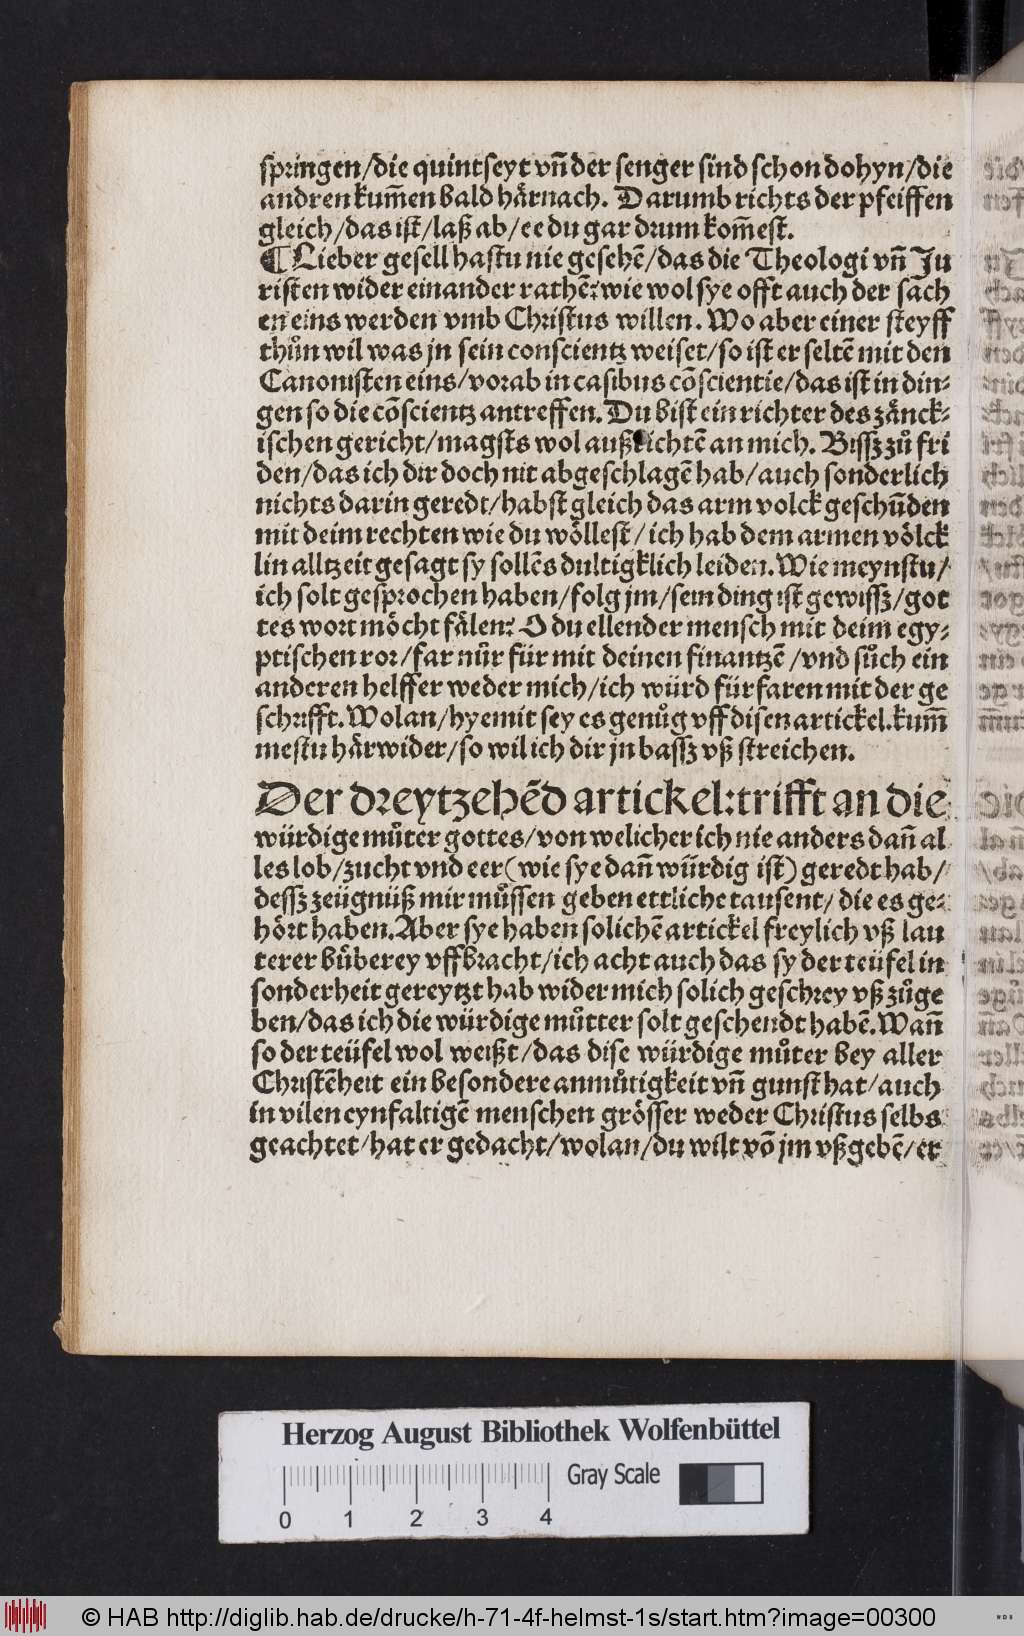 springen/die quintseyt vn̄ der senger sind schon dohyn/die
andren kum̄en bald härnach. Darumb richts der pfeiffen
gleich/das ist/laß ab/ee du gar drum kom̄est.
¶ Lieber gesell hastu nie gesehē/das die Theologi vn̄ Ju
risten wider einander rathē: wie wol sye offt auch der sach
en eins werden vmb Christus willen. Wo aber einer steyff
thůn wil was jn sein conscientz weiset/so ist er seltē mit den
Canonisten eins/vorab in casibus cōscientie/das ist in din⸗
gen so die cōscientz antreffen. Du bist ein richter des zänck⸗
ischen gericht/magsts wol außrichtē an mich. Bissz zů fri
den/das ich dir doch nit abgeschlagē hab/auch sonderlich
nichts darin geredt/habst gleich das arm volck geschūden
mit deim rechten wie du wöllest/ich hab dem armen völck
lin alltzeit gesagt sy sollēs dultigklich leiden. Wie meynstu/
ich solt gesprochen haben/folg jm/sein ding ist gewissz/got
tes wort möcht fälen: O du ellender mensch mit deim egy⸗
ptischen ror/far nůr für mit deinen finantzē/vnd sůch ein
anderen helffer weder mich/ich würd fürfaren mit der ge
schrifft. Wolan/hyemit sey es genůg vff disen artickel. kum̄
mestu härwider/so wil ich dir jn bassz vß streichen.
Der dreytzehēd artickel: trifft an die
würdige můter gottes/von welicher ich nie anders dan̄ al
les lob/zucht vnd eer (wie sye dan̄ würdig ist) geredt hab/
dessz zeügnüß mir müssen geben ettliche tausent/die es ge⸗
hört haben. Aber sye haben solichē artickel freylich vß lau
terer büberey vffbracht/ich acht auch das sy der teüfel in
sonderheit gereytzt hab wider mich solich geschrey vß zůge
ben/das ich die würdige můtter solt geschendt habē. Wan̄
so der teüfel wol weißt/das dise würdige můter bey aller
Christēheit ein besondere anmůtigkeit vn̄ gunst hat/auch
in vilen eynfaltigē menschen grösser weder Christus selbs
geachtet/hat er gedacht/wolan/du wilt vō jm vßgebē/er
Herzog August Bibliothek Wolfenbüttel
0 1 2 3 4 Gray Scale
© HAB http://diglib.hab.de/drucke/h-71-4f-helmst-1s/start.htm?image=00300